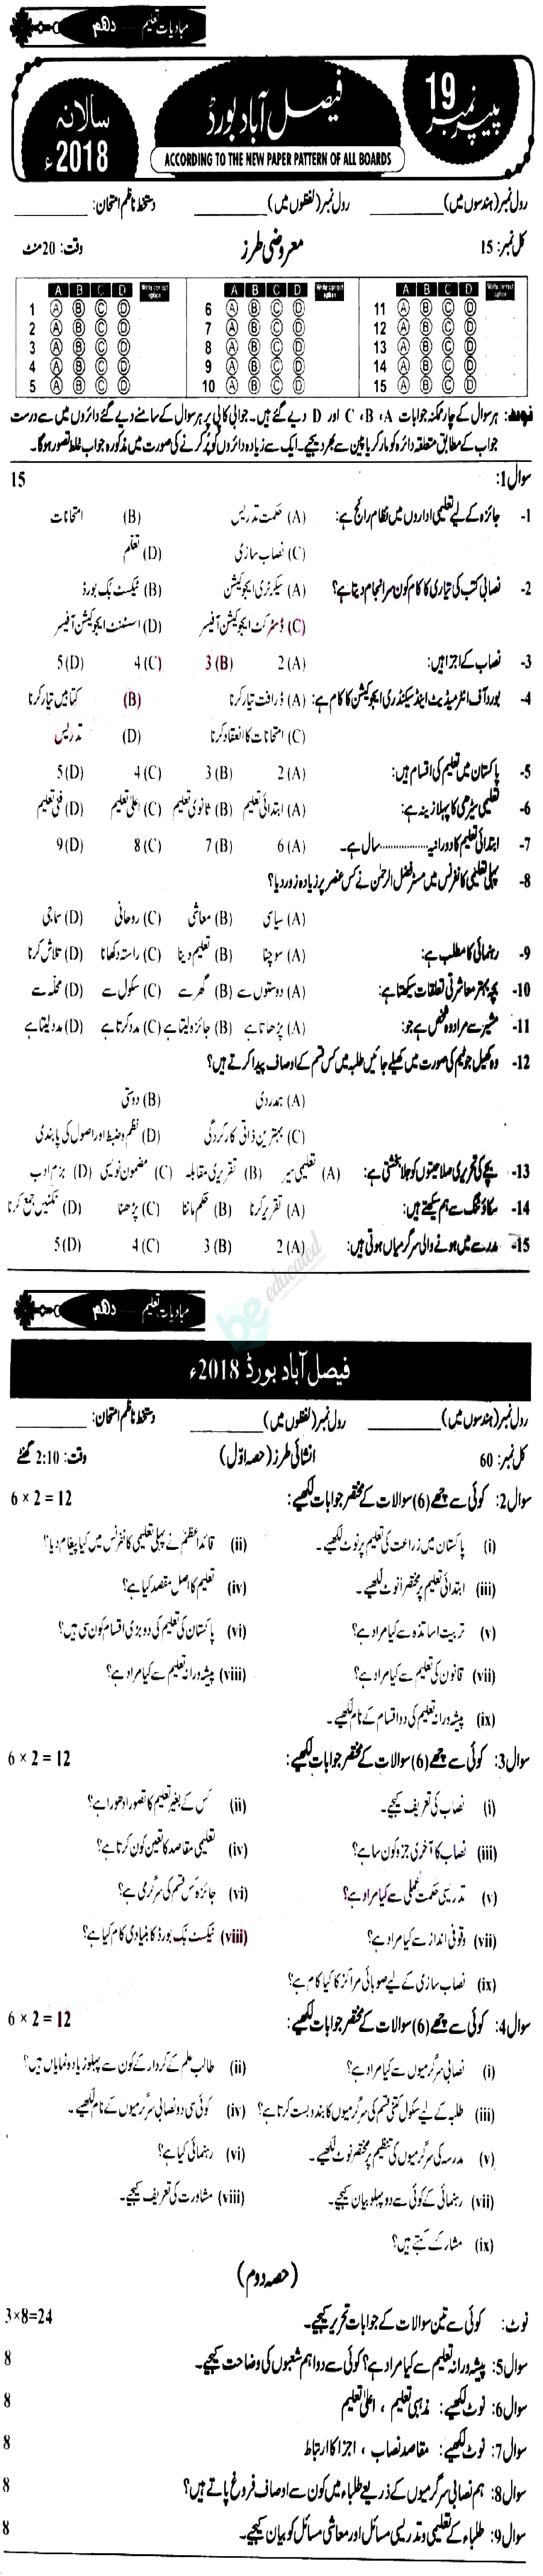 مبادیات تعلیم ...... دھم
پیپر نمبر 19
فیصل آباد بورڈ
ACCORDING TO THE NEW PAPER PATTERN OF ALL BOARDS
سالانہ 2018ء
رول نمبر (ہندسوں میں)__________ رول نمبر (لفظوں میں)__________ دستخط ناظم امتحان: __________
کل نمبر: 15 معروضی طرز وقت: 20 منٹ
A B C D Write correct option A B C D Write correct option A B C D Write correct option
1 A B C D 6 A B C D 11 A B C D
2 A B C D 7 A B C D 12 A B C D
3 A B C D 8 A B C D 13 A B C D
4 A B C D 9 A B C D 14 A B C D
5 A B C D 10 A B C D 15 A B C D
نوٹ: ہر سوال کے چار ممکنہ جوابات A، B، C اور D دیے گئے ہیں۔ جوابی کاپی پر ہر سوال کے سامنے دیے گئے دائروں میں سے درست
جواب کے مطابق متعلقہ دائرہ کو مارکر یا پین سے بھر دیجیے۔ ایک سے زیادہ دائروں کو پُر کرنے کی صورت میں مذکورہ جواب غلط تصور ہوگا۔
سوال 1: 15
1- جائزہ کے لیے تعلیمی اداروں میں نظام رائج ہے: (A) حکمت تدریس (B) امتحانات
(C) نصاب سازی (D) تعلم
2- نصابی کتب کی تیاری کا کام کون سرانجام دیتا ہے؟ (A) سیکرٹری ایجوکیشن (B) ٹیکسٹ بک بورڈ
(C) ڈسٹرکٹ ایجوکیشن آفیسر (D) اسسٹنٹ ایجوکیشن آفیسر
3- نصاب کے اجزا ہیں: (A) 2 (B) 3 (C) 4 (D) 5
4- بورڈ آف انٹرمیڈیٹ اینڈ سیکنڈری ایجوکیشن کا کام ہے: (A) ڈرافٹ تیار کرنا (B) کتابیں تیار کرنا
(C) امتحانات کا انعقاد کرنا (D) تدریس
5- پاکستان میں تعلیم کی اقسام ہیں: (A) 2 (B) 3 (C) 4 (D) 5
6- تعلیمی سیڑھی کا پہلا زینہ ہے: (A) ابتدائی تعلیم (B) ثانوی تعلیم (C) اعلیٰ تعلیم (D) فنی تعلیم
7- ابتدائی تعلیم کا دورانیہ ................ سال ہے۔ (A) 6 (B) 7 (C) 8 (D) 9
8- پہلی تعلیمی کانفرنس میں مسٹر فضل الرحمٰن نے کس عنصر پر زیادہ زور دیا؟
(A) سیاسی (B) معاشی (C) روحانی (D) سماجی
9- رہنمائی کا مطلب ہے: (A) سوچنا (B) تعلیم دینا (C) راستہ دکھانا (D) تلاش کرنا
10- بچہ بہتر معاشرتی تعلقات سیکھتا ہے: (A) دوستوں سے (B) گھر سے (C) سکول سے (D) محلّہ سے
11- مشیر سے مراد وہ شخص ہے جو: (A) پڑھاتا ہے (B) جائزہ لیتا ہے (C) مدد کرتا ہے (D) مدد لیتا ہے
12- وہ کھیل جو ٹیم کی صورت میں کھیلے جائیں طلبہ میں کس قسم کے اوصاف پیدا کرتے ہیں؟
(A) ہمدردی (B) دوستی
(C) بہترین ذاتی کارکردگی (D) نظم و ضبط اور اصول کی پابندی
13- بچے کی تحریری صلاحیتوں کو جلا بخشتی ہے: (A) تعلیمی سیر (B) تقریری مقابلہ (C) مضمون نویسی (D) بزم ادب
14- سکاؤٹنگ سے ہم سیکھتے ہیں: (A) تقریر کرنا (B) حکم ماننا (C) پڑھنا (D) ٹکٹیں جمع کرنا
15- مدرسے میں ہونے والی سرگرمیاں ہوتی ہیں: (A) 2 (B) 3 (C) 4 (D) 5
be educated
مبادیات تعلیم ...... دھم
فیصل آباد بورڈ 2018ء
رول نمبر (ہندسوں میں)__________ رول نمبر (لفظوں میں)__________ دستخط ناظم امتحان: __________
کل نمبر: 60 انشائی طرز (حصہ اوّل) وقت: 2:10 گھنٹے
سوال 2: کوئی سے چھے (6) سوالات کے مختصر جوابات لکھیے: 6 × 2 = 12
(i) پاکستان میں زراعت کی تعلیم پر نوٹ لکھیے۔ (ii) قائداعظم نے پہلی تعلیمی کانفرنس میں کیا پیغام دیا؟
(iii) ابتدائی تعلیم پر مختصراً نوٹ لکھیے۔ (iv) تعلیم کا اصل مقصد کیا ہے؟
(v) تربیت اساتذہ سے کیا مراد ہے؟ (vi) پاکستان کی تعلیم کی دو بڑی اقسام کون سی ہیں؟
(vii) قانون کی تعلیم سے کیا مراد ہے؟ (viii) پیشہ ورانہ تعلیم سے کیا مراد ہے؟
(ix) پیشہ ورانہ تعلیم کی دو اقسام کے نام لکھیے۔
سوال 3: کوئی سے چھے (6) سوالات کے مختصر جوابات لکھیے: 6 × 2 = 12
(i) نصاب کی تعریف کیجیے۔ (ii) کس کے بغیر تعلیم کا تصور ادھورا ہے؟
(iii) نصاب کا آخری جزو کون سا ہے؟ (iv) تعلیمی مقاصد کا تعین کون کرتا ہے؟
(v) تدریسی حکمت عملی سے کیا مراد ہے؟ (vi) جائزہ کس قسم کی سرگرمی ہے؟
(vii) وقوفی انداز سے کیا مراد ہے؟ (viii) ٹیکسٹ بک بورڈ کا بنیادی کام کیا ہے؟
(ix) نصاب سازی کے لیے صوبائی مراکز کا کیا کام ہے؟
سوال 4: کوئی سے چھے (6) سوالات کے مختصر جوابات لکھیے: 6 × 2 = 12
(i) نصابی سرگرمیوں سے کیا مراد ہے؟ (ii) طالب علم کے کردار کے کون سے پہلو زیادہ نمایاں ہیں؟
(iii) طلبہ کے لیے سکول کتنی قسم کی سرگرمیوں کا بندوبست کرتا ہے؟ (iv) کوئی سی دو نصابی سرگرمیوں کے نام لکھیے۔
(v) مدرسہ کی سرگرمیوں کی تنظیم پر مختصر نوٹ لکھیے۔ (vi) رہنمائی کیا ہے؟
(vii) رہنمائی کے کوئی سے دو پہلو بیان کیجیے۔ (viii) مشاورت کی تعریف کیجیے۔
(ix) مشار کسے کہتے ہیں؟
(حصہ دوم)
نوٹ: کوئی سے تین سوالات کے جوابات تحریر کیجیے۔ 3×8=24
سوال 5: پیشہ ورانہ تعلیم سے کیا مراد ہے؟ کوئی سے دو اہم شعبوں کی وضاحت کیجیے۔ 8
سوال 6: نوٹ لکھیے: مذہبی تعلیم ، اعلیٰ تعلیم 8
سوال 7: نوٹ لکھیے: مقاصد نصاب ، اجزا کا ارتباط 8
سوال 8: ہم نصابی سرگرمیوں کے ذریعے طلباء میں کون سے اوصاف فروغ پاتے ہیں؟ 8
سوال 9: طلباء کے تعلیمی و تدریسی مسائل اور معاشی مسائل کو بیان کیجیے۔ 8